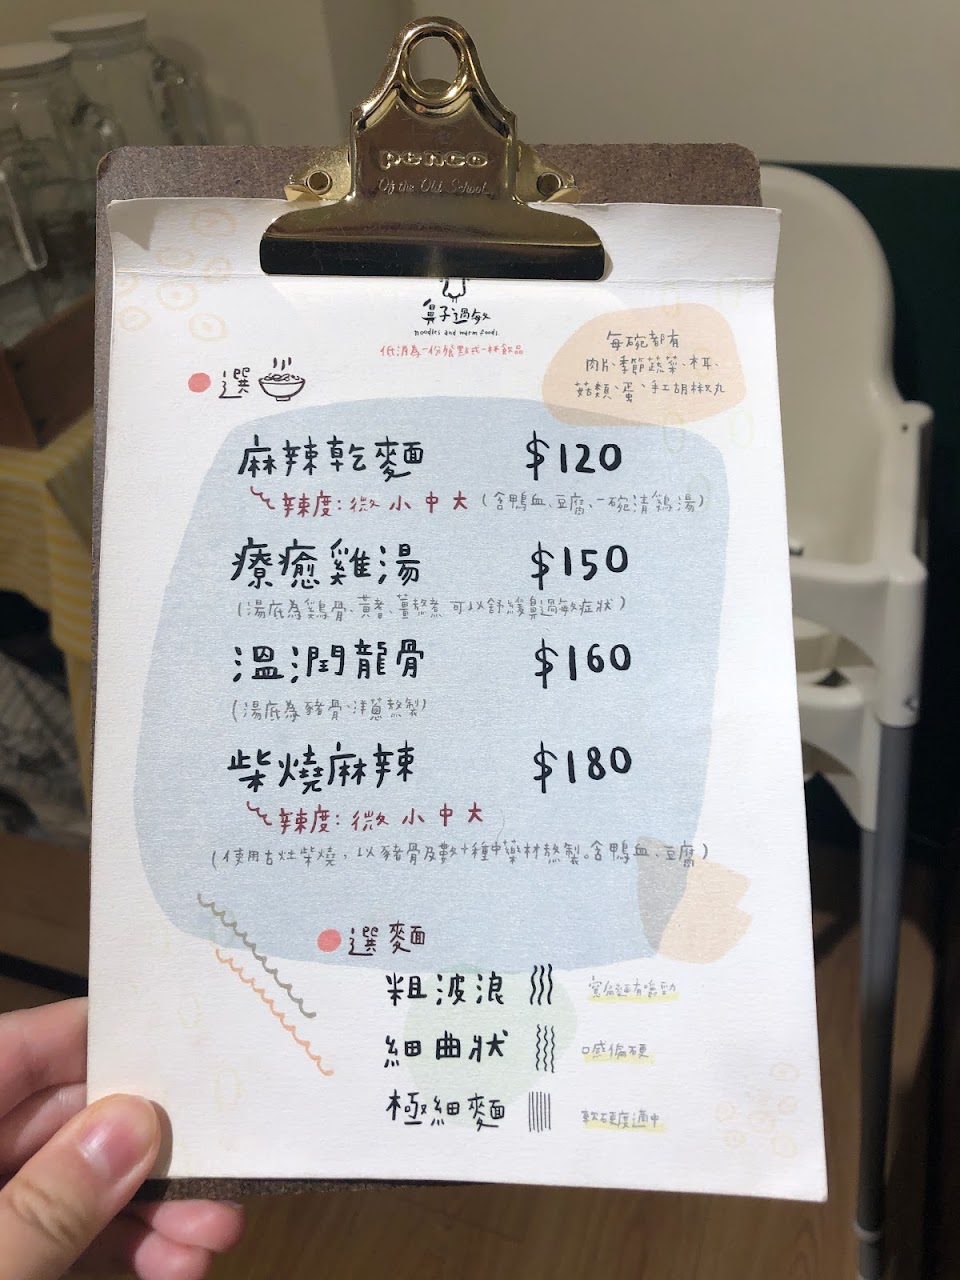 penco
Of the Old School
鼻子過敏
noodles and warm foods.
低消為一份餐點或一杯飲品
每碗都有
肉片、季節蔬菜、木耳、
菇類、蛋、手工胡椒丸
選
麻辣乾麵 $120
辣度:微 小 中 大 (含鴨血、豆腐、一碗清鷄湯)
療癒雞湯 $150
(湯底為鷄骨、黃耆、薑熬煮 可以舒緩鼻過敏症狀)
溫潤龍骨 $160
(湯底為豬骨、洋蔥熬製)
柴燒麻辣 $180
辣度:微 小 中 大
(使用古灶柴燒,以豬骨及數十種中藥材熬製。含鴨血、豆腐)
選麵
粗波浪 有嚼勁
細曲狀 口感偏硬
極細麵 軟硬度適中